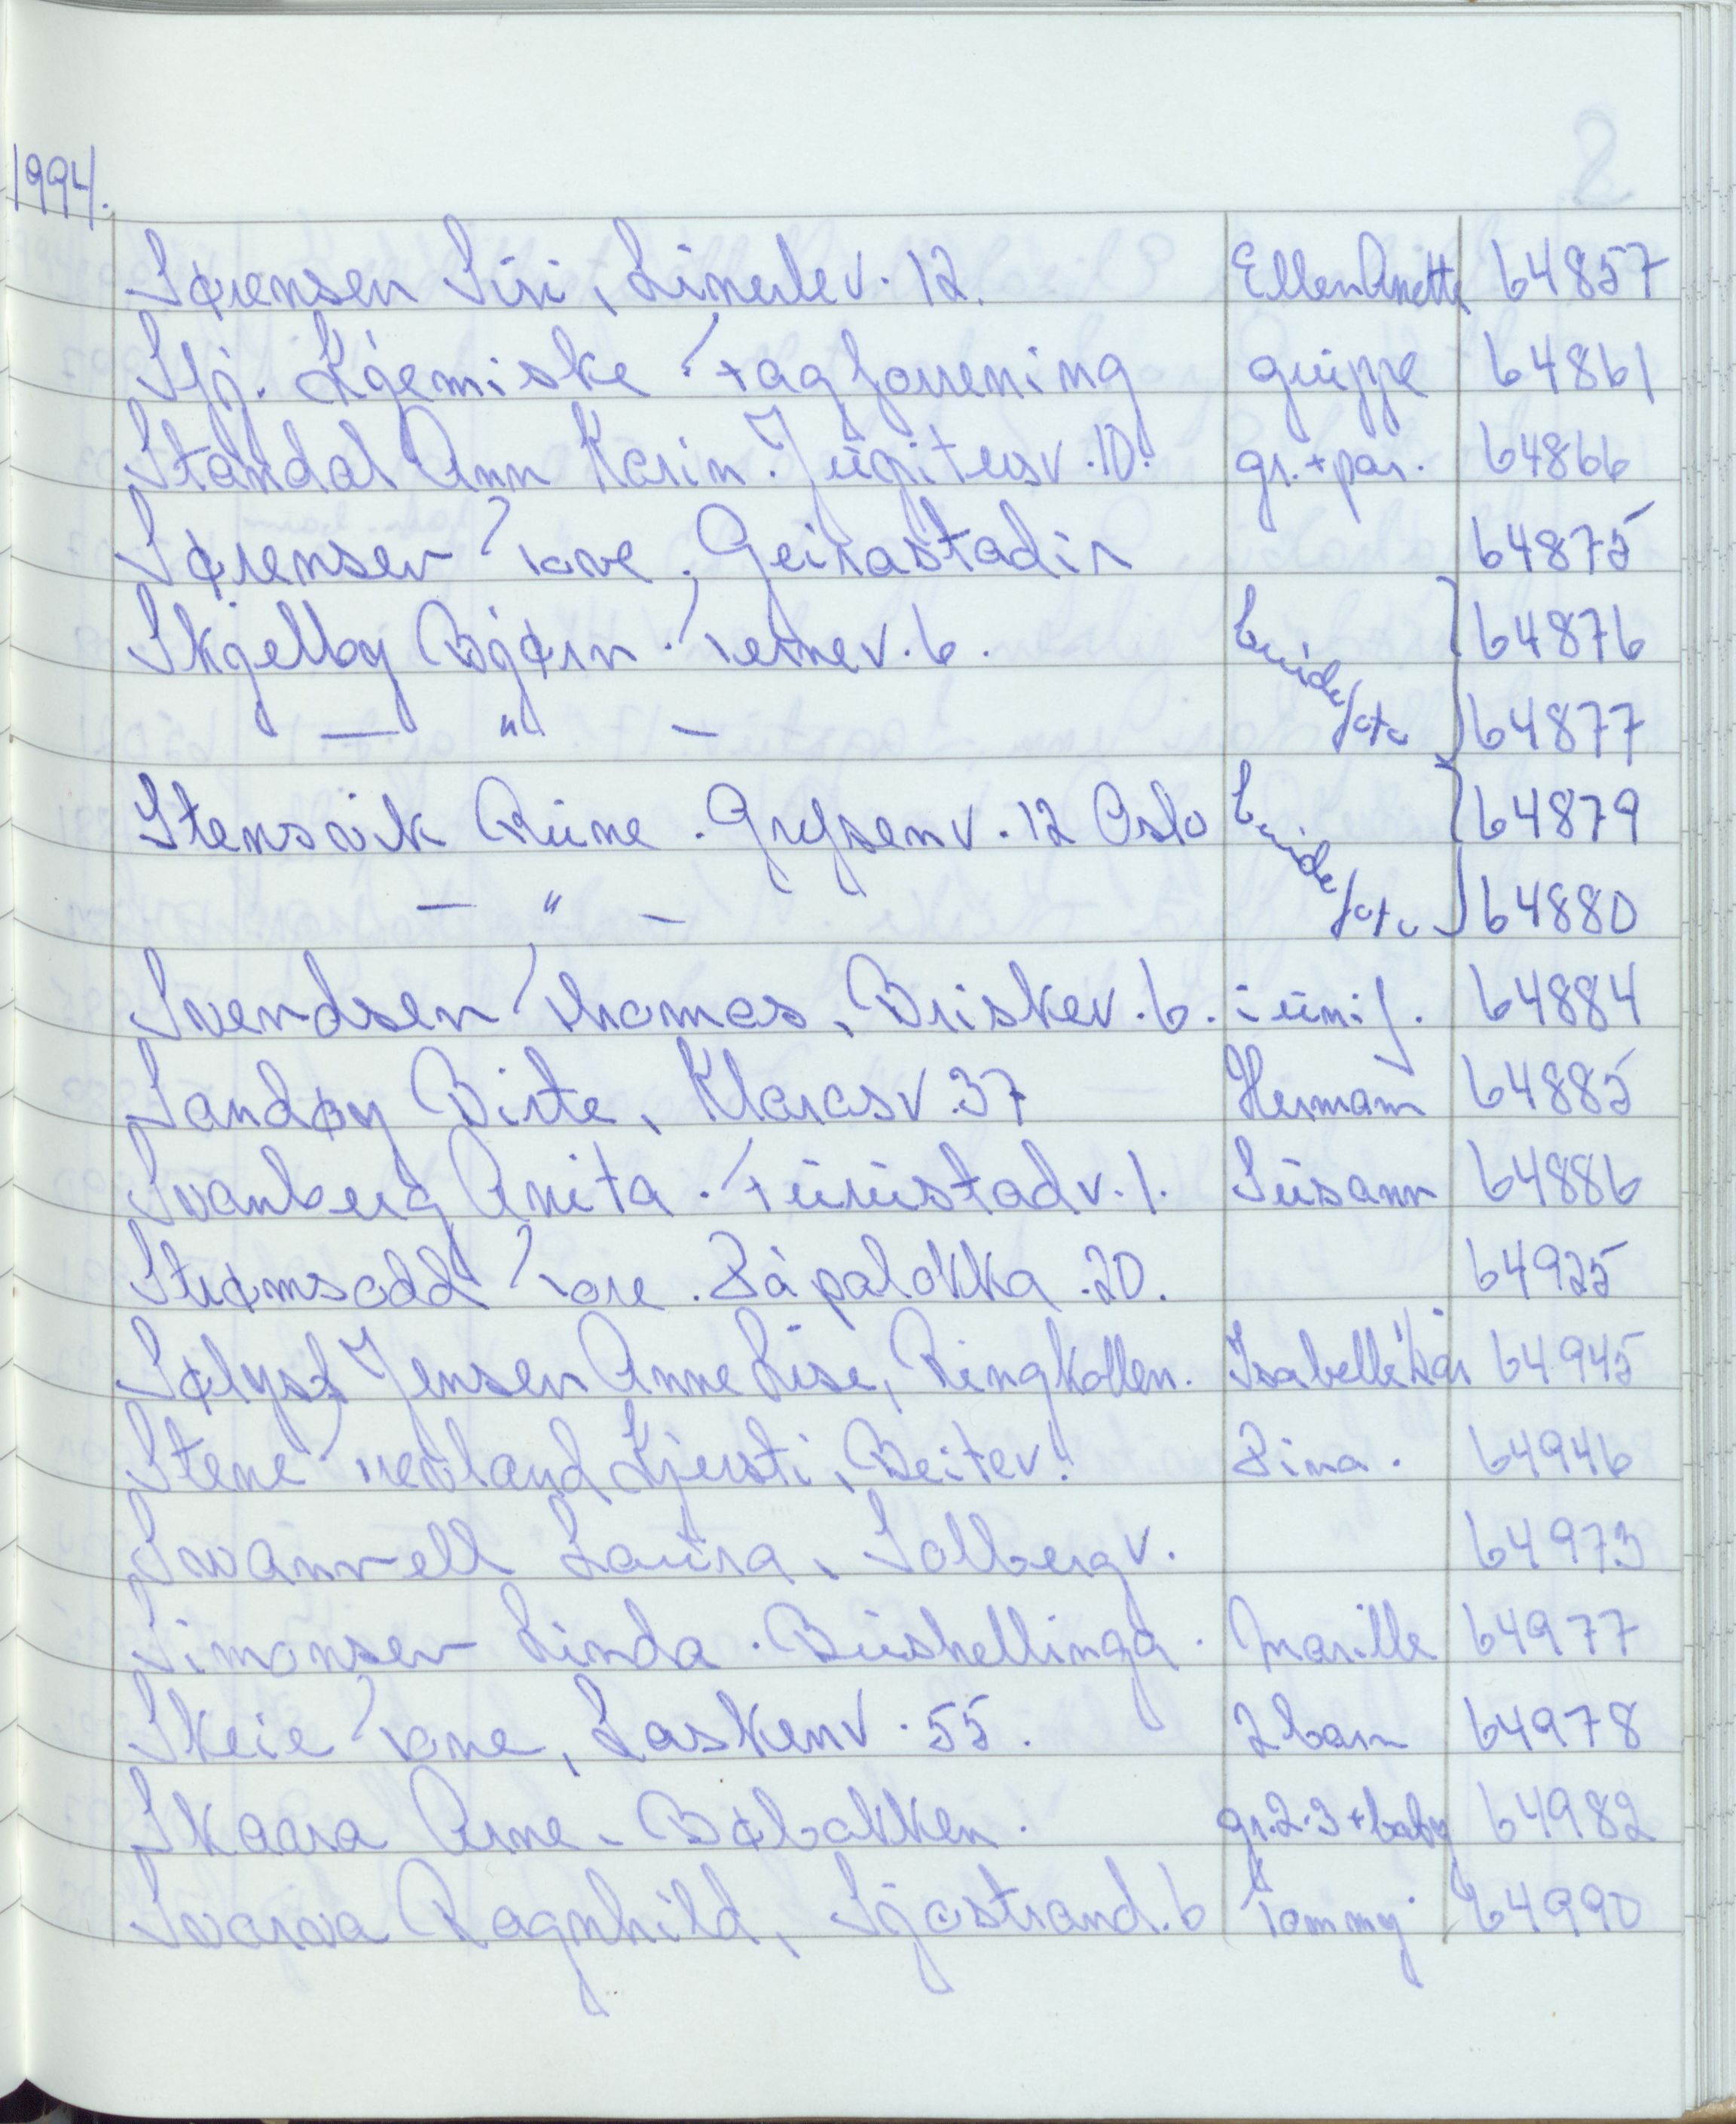 1994.
Sørensen Siri, Linerlev. 12. Ellen Anette 64857
Sfj. Kjemiske Fagforening gruppe 64861
Standal Ann Karin. Jupitersv. 10. gr. + par. 64866
Sørensen Tove. Geirastadir 64875
Skjelby Bjørn. Ternev. 6. brude 64876
— " — foto 64877
Stensvik Rune. Grefsenv. 12 Oslo brude 64879
— " — foto 64880
Svendsen Thomas, Briskev. 6. i unif. 64884
Sandøy Birte, Klarasv. 37 Hermann 64885
Svanberg Anita. Furustadv. 1. Susann 64886
Strømsodd Tore. Råpaløkka. 20. 64925
Sølyst Jensen Anne Lise, Ringkollen. Isabelle 64945
Stene Trevland Kjersti, Beitev. Sina. 64946
Swannell Laura, Solbergv. 64973
Simonsen Linda. Bushellinga. Marille 64977
Skeie Tone, Laskenv. 55. 2 barn 64978
Skaara Arne - Bøbakken. gr. 2-3 + baby 64982
Svarva Ragnhild, Sjøstrand. 6 Tommy 64990